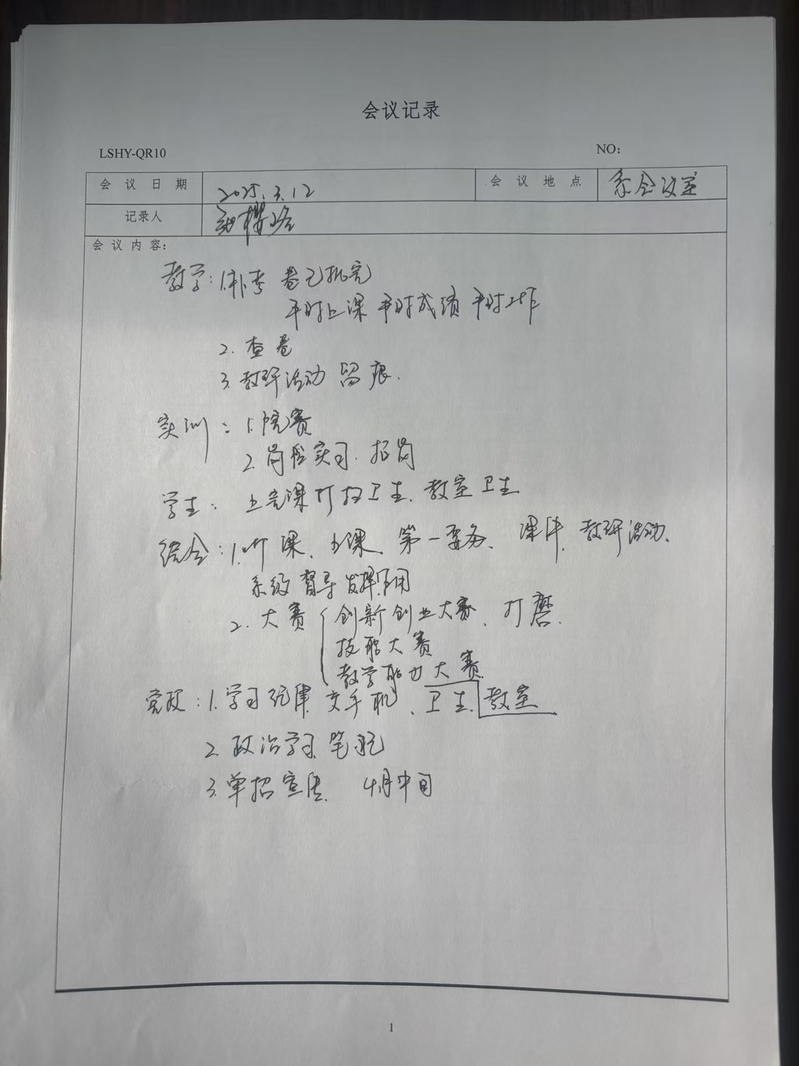 会议记录
LSHY-QR10 NO:
会议日期 2025.3.12 会议地点 系会议室
记录人
会议内容:
教学: 1.补考 卷已批完
平时上课 平时成绩 平时工作
2. 查卷
3. 教研活动 留痕.
实训: 1.院赛
2. 岗位实习. 招岗
学生: 上完课打扫卫生. 教室卫生
综合: 1.听课、上课、第一要务、课件、教研活动.
系级督导发挥作用
2. 大赛 创新创业大赛、打磨.
技能大赛
教学能力大赛
党政: 1.学习纪律 交手机、卫生 教室
2. 政治学习 笔记
3. 单招宣传 4月中旬
1